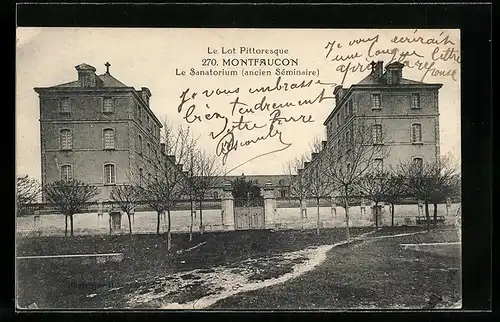 Le Lot Pittoresque
270. MONTFAUCON
Le Sanatorium (ancien Séminaire)
Je vous écrirait
une longue lettre
après
Je vous embrasse
bien tendrement
Votre